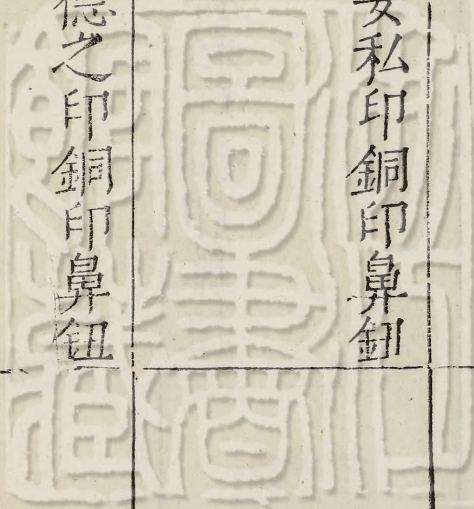 私印銅印鼻鈕
德之印銅印鼻鈕